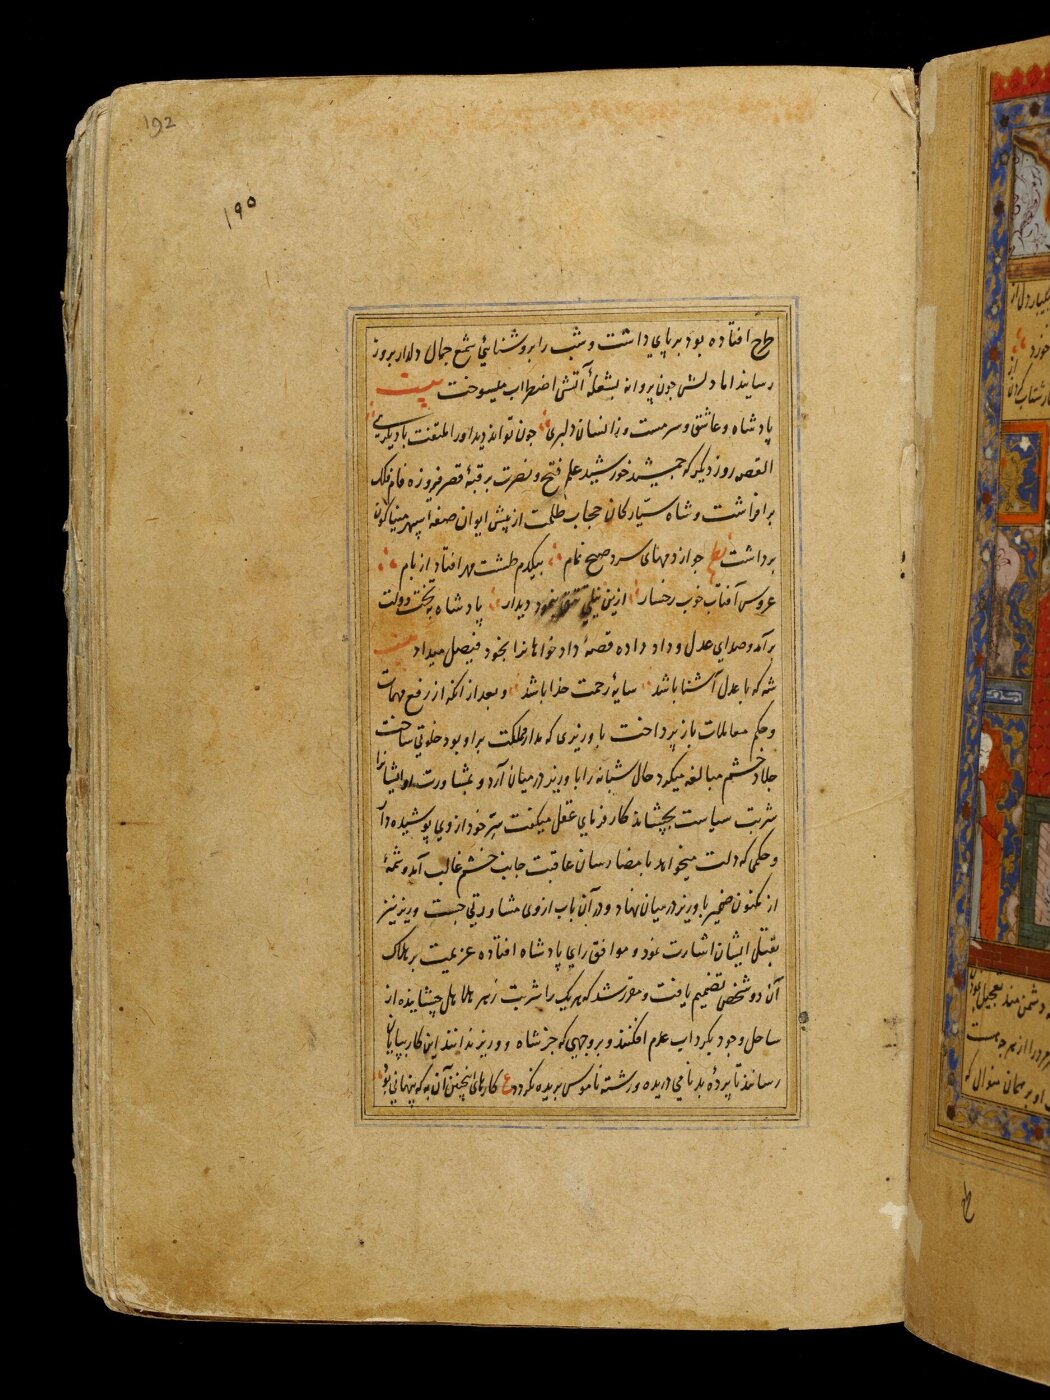 192
۱۹۵
طرح افتاده بود بر پای داشت و شب را بروشنائی شمع جمال دلدار بروز
رسانید اما دلش چون پروانه بشعلهٔ آتش اضطراب میسوخت بیت
پادشاه و عاشق و سرمست و زانسان دلبری چون تواند دید او را ملتفت با دیگری
القصه روز دیگر که جمشید خورشید علم فتح و نصرت بر قبهٔ قصر فیروزه فام فلک
برافراشت و شاه ستیارکان حجاب ظلمت از پیش ایوان صفهٔ سپهر مینا کون
برداشت نظم چو از دمهای سرد صبح نمام بیکدم طشت مهر افتاد از بام
عروس آفتاب خوب رخسار ازین نیلی تتق بنمود دیدار پادشاه به تخت دولت
برآمد و صدای عدل و داد داده قصهٔ داد خواهانرا بخود فیصل میداد بیت
شه که با عدل آشنا باشد سایهٔ رحمت خدا باشد و بعد از انکه از رفع مهمات
و حکم معاملات باز پرداخت با وزیری که مدار مملکت بر او بود خلوتی ساخت
جلاد خشم مبالغه میکرد حال شبانه را با وزیر در میان آرد و بمشاورت او ایشانرا
شربت سیاست بچشاند کارفرمای عقل میکفت سر خود از وی پوشیده دار
و حکمی که دلت میخواهد بامضا رسان عاقبت جانب خشم غالب آمد و شمهٔ
از مکنون ضمیر با وزیر در میان نهاد و در آن باب ازوی مشاورتی جست وزیر نیز
بقتل ایشان اشارت نمود و موافق رای پادشاه افتاده عزیمت بر هلاک
آن دو شخص تصمیم یافت و مقرر شد که هر یک را شربت زهر هلاهل چشانیده از
ساحل وجود بکرداب عدم افکنند و بر وجهی که جز شاه و وزیر ندانند این کار بپایان
رسانند تا پردهٔ بدنامی دریده و رشته ناموس بریده نکردد ع کارهای اینچنین آن به که پنهانی بود